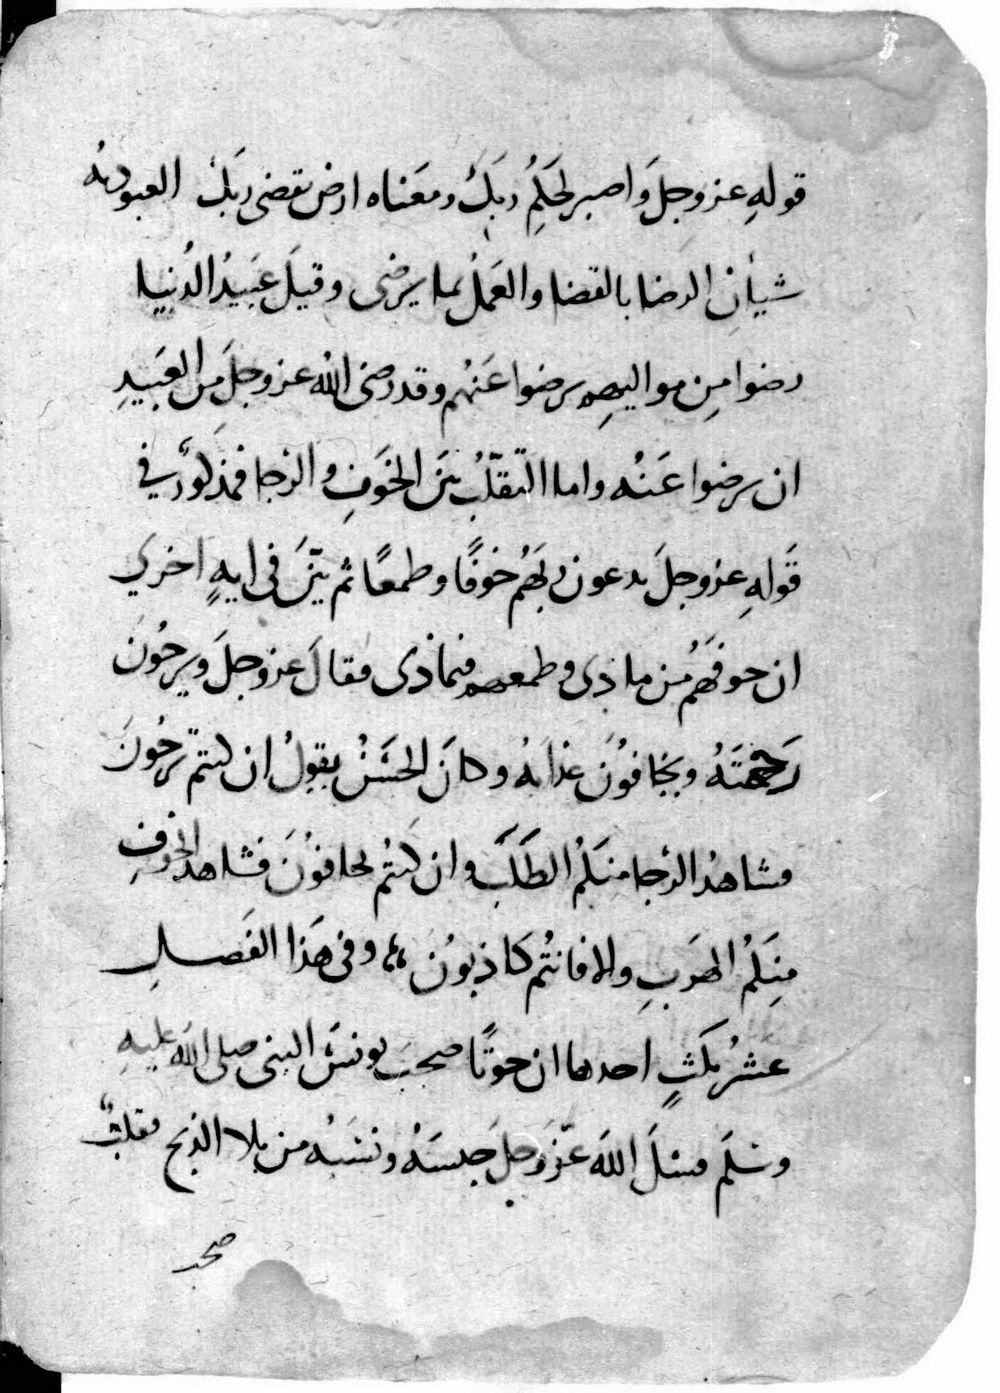 قولهِ عز وجلَ واصبر لحكمِ ربكَ ومعناه ارض بقضى ربكَ العبوديه
شيأنِ الرضا بالقضا والعَملُ بما يرضى وقيلَ عَبيدُ الدُنيا
رضوا مِن مواليهم برضوا عَنهُم وقد رضى الله عز وجلَ مِن العَبيدِ
ان يرضوا عَنهُ واما التقلّبُ بينَ الخَوفِ والرجا فمذكورٌ في
قَولهِ عز وجلَ يدعون ربَهُم خوفًا وطمعًا ثم بيّنَ في ايهٍ اخري
ان خوفَهُم مِن ماذى وطمعهم فيماذى فقالَ عز وجلَ ويرجُونَ
رَحمتَهُ ويخافُونَ عذابهُ وكانَ الحَسَنُ يقولُ ان كنتم ترجُونَ
فشاهدُ الرجا منكمُ الطَلَبَ وان كنتُم تخافونَ فشاهد الخوفِ
مِنكمُ الهَرَبِ والا فانتُم كاذبونَ ،، وفي هَذا الفَصلِ
عشرُ نكتٍ احدها ان حوتًا صحبَ يونسَ النبي صلى الله عليهِ
وسَلم فسَلَ اللهَ عزّ وجلَ جنسَهُ ونسَبهُ من بلا الذبح فقلبٌ
صحبـ